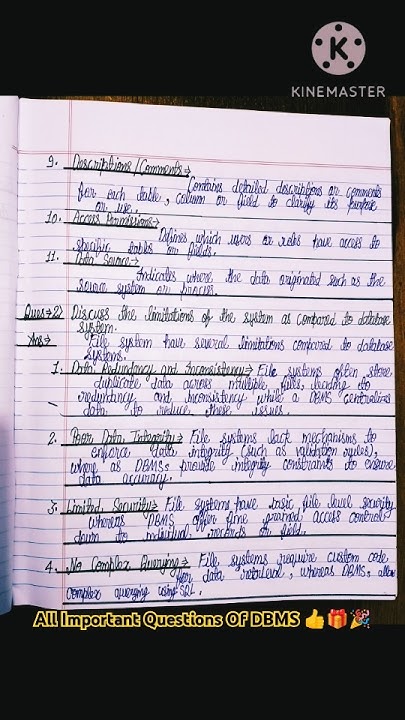 KINEMASTER
9. Descriptions/Comments→
Contains detailed descriptions or comments
for each table, column or field to clarify its purpose
or use.
10. Access Permissions→
Defines which users or roles have access to
specific tables or fields.
11. Data Source→
Indicates where the data originated such as the
source system or process.
Ques→2) Discuss the limitations of the system as compared to database
system.
Ans→ File system have several limitations compared to database
systems.
1. Data Redundancy and Inconsistency→ File systems often store
duplicate data across multiple files, leading to
redundancy and inconsistency while a DBMS centralizes
data to reduce these issues.
2. Poor Data Integrity→ File systems lack mechanisms to
enforce data integrity (such as validation rules),
where as DBMS provide integrity constraints to ensure
data accuracy.
3. Limited Security→ File systems have basic file level security
whereas DBMS offer fine grained access control
down to individual records or field.
4. No Complex Querying→ File systems require custom code
for data retrieval, whereas DBMS, allow
complex querying using SQL.
All Important Questions Of DBMS 👍🎁🎉